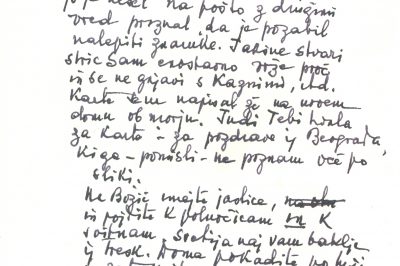 nesel na pošto z drugimi
vred priznal, da je pozabil
nalepiti znamke. Takšne stvari
stric Sam enostavno vrže proč
in se ne gnjavi s kaznimi, itd.
Karto sem napisal že na novem
domu ob morju. Tudi Tebi hvala
za karto i za pozdrave iz Beograda,
ki ga - pomisli - ne poznam več po
sliki.
Na Božič imejte jaslice,
in pojdite k polnočnicam in k
svitnam. Svetijo naj vam baklje
iz tresk. Doma pokadite po hiši